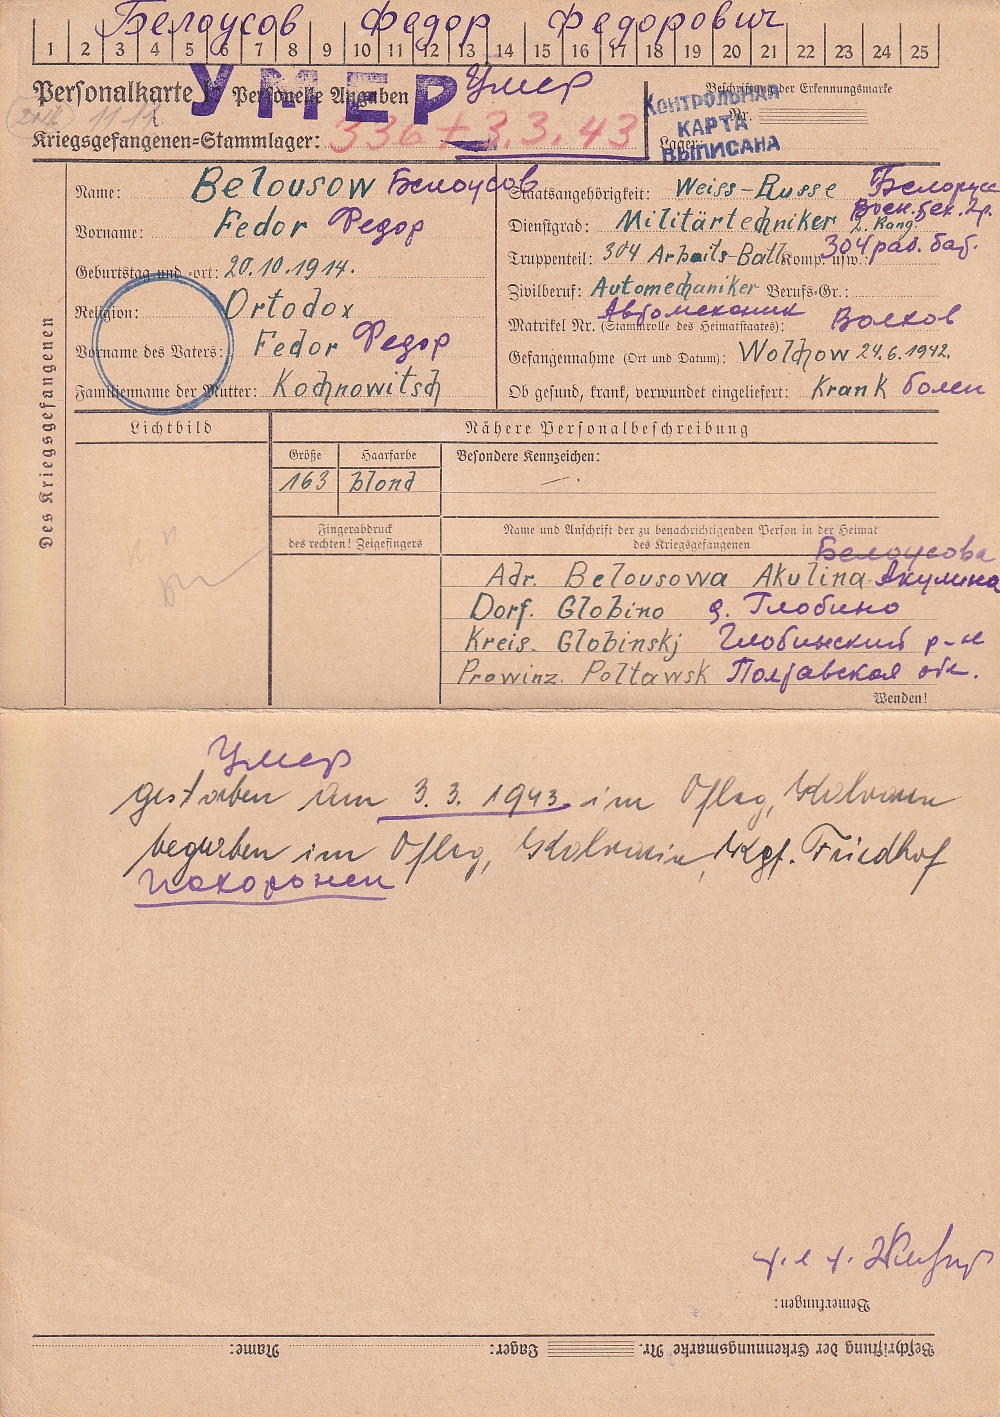 Белоусов Федор Федорович
1 2 3 4 5 6 7 8 9 10 11 12 13 14 15 16 17 18 19 20 21 22 23 24 25
Personalkarte I: Personelle Angaben
УМЕР Умер
Beschriftung der Erkennungsmarke
Nr.
Kriegsgefangenen=Stammlager: 336 + 3.3.43
Lager:
КОНТРОЛЬНАЯ
КАРТА
ВЫПИСАНА
Des Kriegsgefangenen
Name: Belousow Белоусов
Vorname: Fedor Федор
Geburtstag und -ort: 20.10.1914.
Religion: Ortodox
Vorname des Vaters: Fedor Федор
Familienname der Mutter: Kochnowitsch
Staatsangehörigkeit: Weiss-Russe Белорусс
Dienstgrad: Militärtechniker 2. Rang. Воен. тех. 2 р.
Truppenteil: 304 Arbeits-Batl. Komp. usw.: 304 раб. бат.
Zivilberuf: Automechaniker Berufs-Gr.:
Автомеханик
Matrikel Nr. (Stammrolle des Heimatstaates): Волхов
Gefangennahme (Ort und Datum): Wolchow 24.6.1942.
Ob gesund, krank, verwundet eingeliefert: Krank болен
Lichtbild
Nähere Personalbeschreibung
Größe Haarfarbe Besondere Kennzeichen:
163 blond —.
Fingerabdruck
des rechten! Zeigefingers
Name und Anschrift der zu benachrichtigenden Person in der Heimat
des Kriegsgefangenen
Белоусова
Adr. Belousowa Akulina Акулина
Dorf. Globino д. Глобино
Kreis. Globinskj Глобинский р-н
Prowinz. Poltawsk Полтавская обл.
Wenden!
Умер
gestorben am 3.3.1943 im Oflag, Kalvarien
begraben im Oflag, Kalvarien, Kgf. Friedhof
Похоронен
Bemerkungen:
Beschriftung der Erkennungsmarke Nr. Lager: Name: